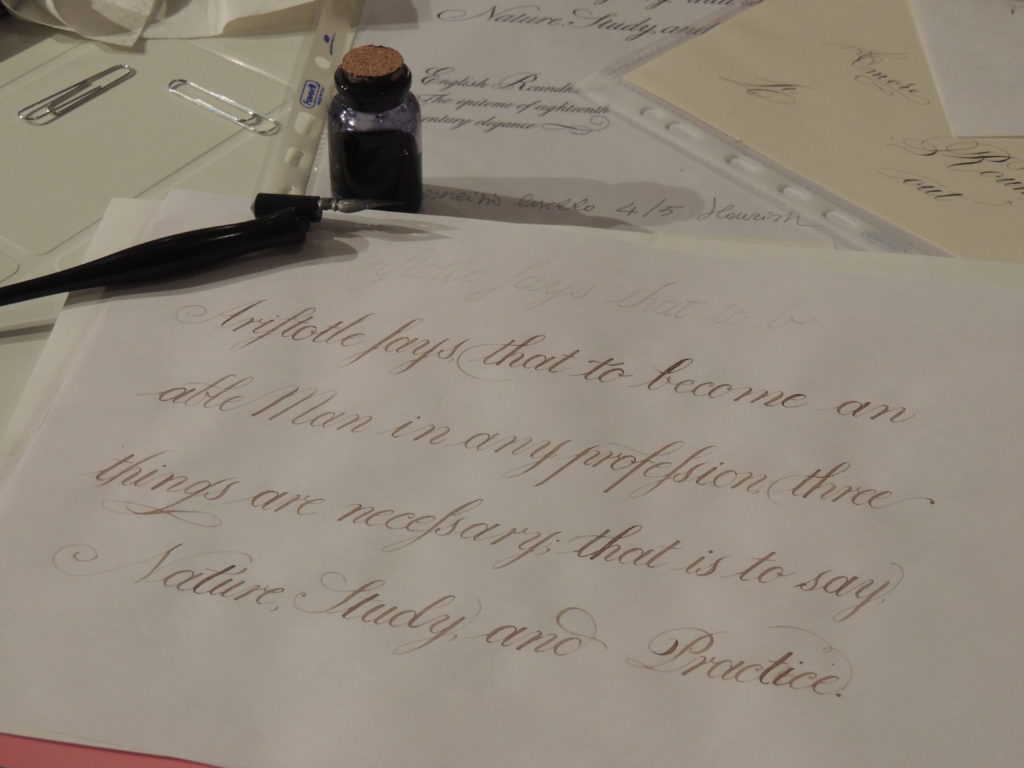 Nature, Study, and
English Roundh
The epitome of eighteenth
century elegance
4/5 flourish
Ariſtotle ſays that to be
Ariſtotle ſays that to become an
able Man in any profeſsion, three
things are neceſsary; that is to say,
Nature, Study, and Practice.